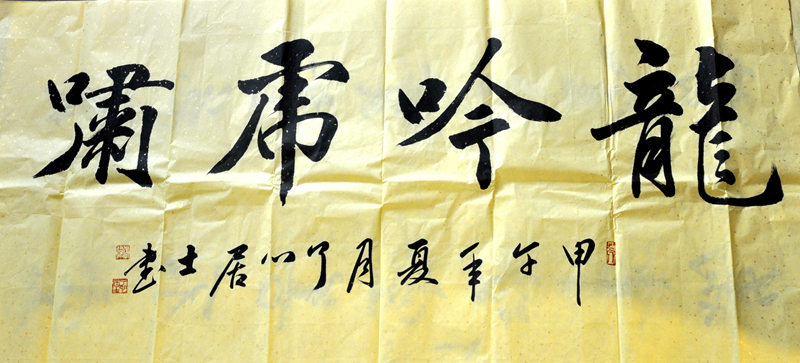 龍吟虎嘯
甲午年夏月了心居士書